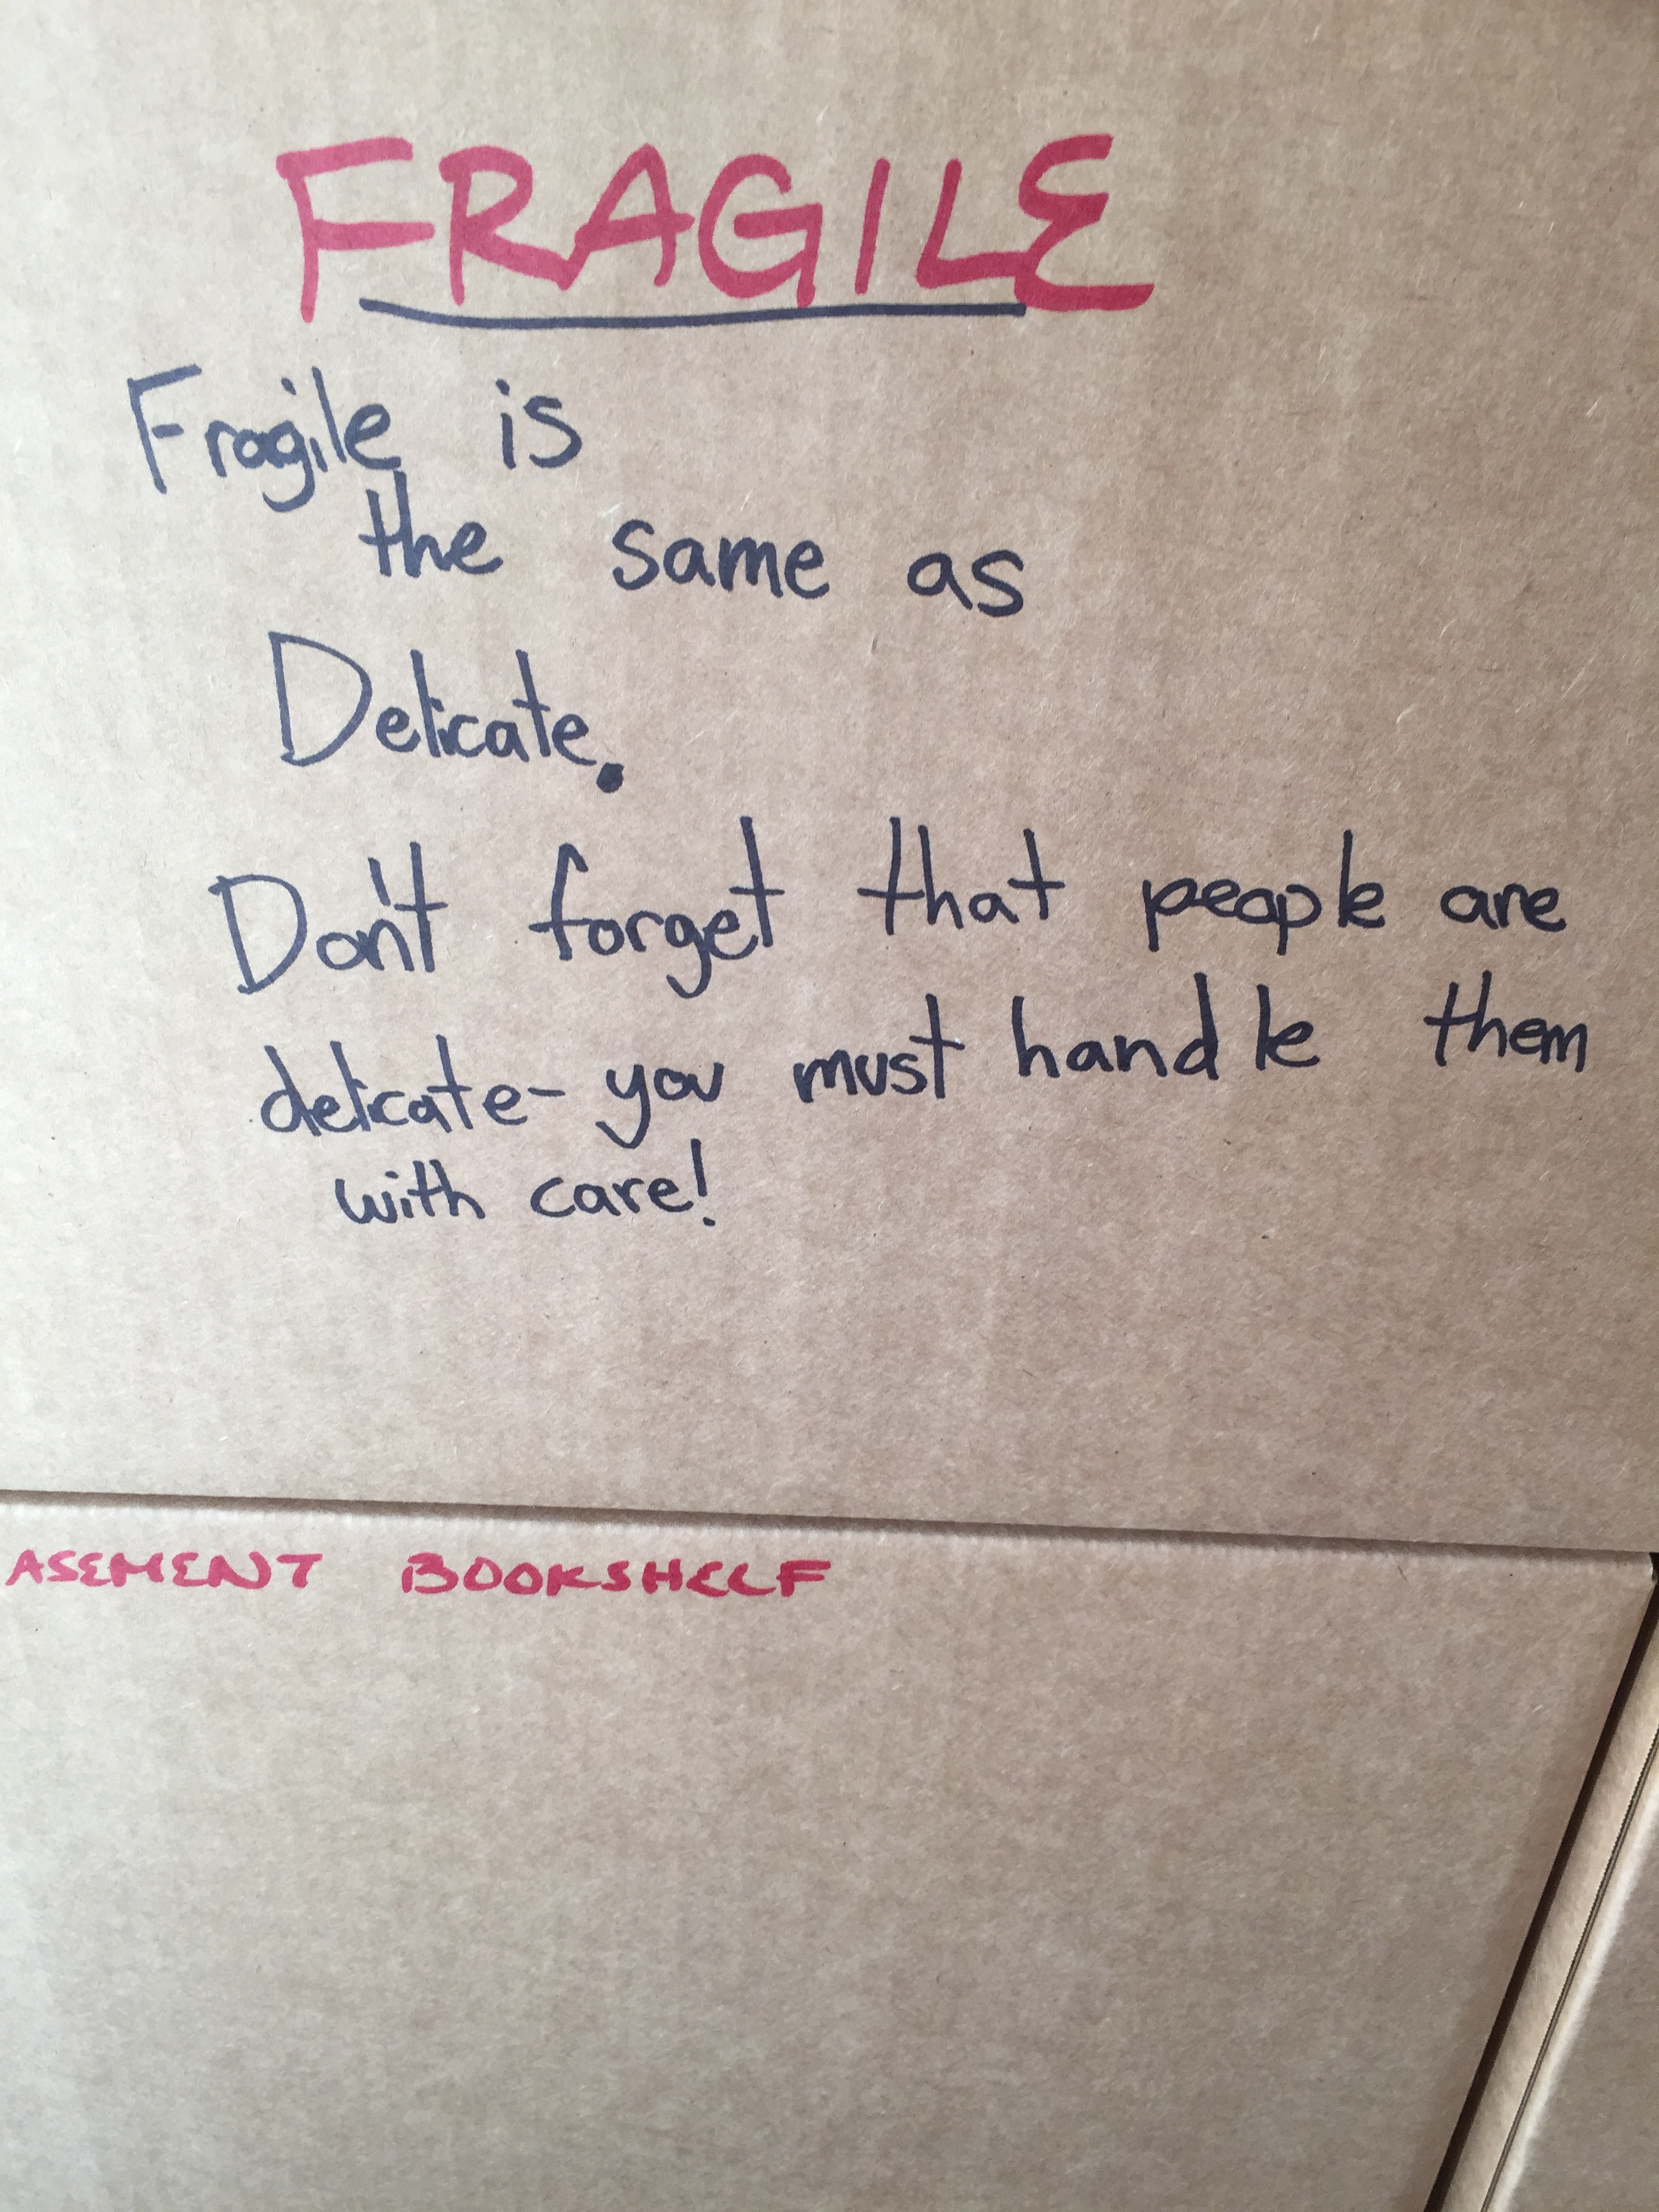 FRAGILE
Fragile is
the same as
Delicate.
Don't forget that people are
delicate- you must handle them
with care!
ASEMENT BOOKSHELF